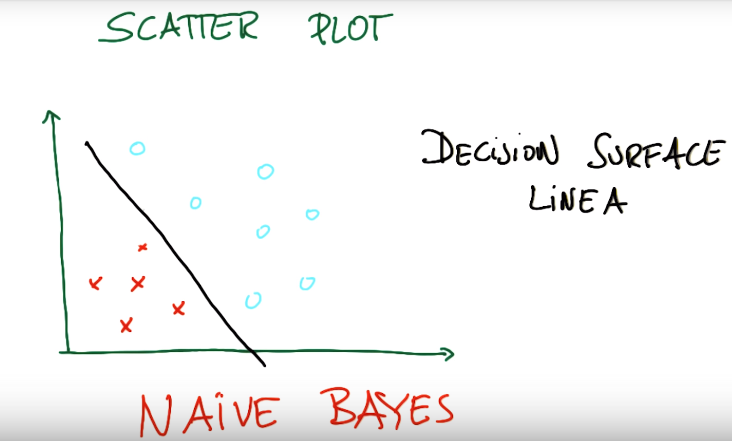 SCATTER PLOT
DECISION SURFACE
LINEA
NAIVE BAYES